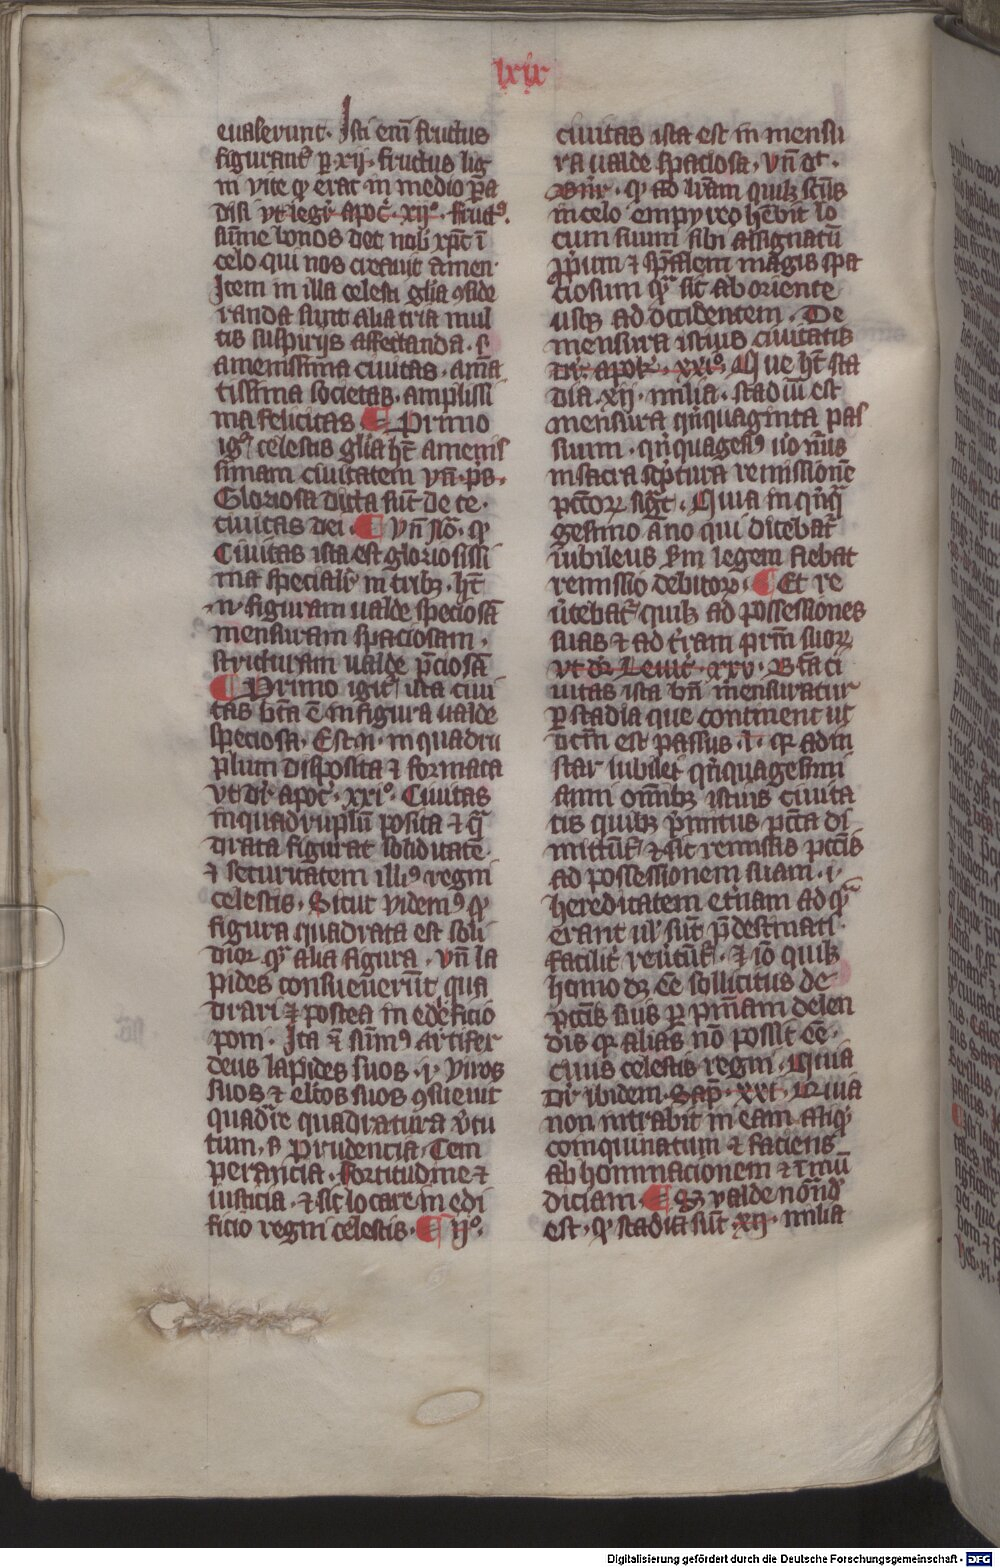 lxix
euaserunt. Isti em̄ fructus
figurant̄ ꝑ xij. fructus lig
ni vite qͥ erat in medio pa
disi vt legr̄ apoc̄. xijº. fruct9.
sūme bonos det nob̄ xpc̄ ī
celo qui nos creauit amen.
Item in illa celesti glīa ꝯside
randa sunt alia tria mul
tis suspirijs affectanda. s̄
amenissima ciuitas. ama
tissima societas. amplissi
ma felicitas ¶ Primo
igͥ celestis glīa hꝫ amenis
simam ciuitatem vn̄. p̄s.
Gloriosa dicta sūt de te.
ciuitas dei. ¶ Vn̄ sc̄. qͥ
Ciuitas ista est gloriosissi
ma specialiꝭ in tribꝫ. hꝫ
.n. figuram ualde speciosā
mensuram spaciosam.
structuram ualde p̄ciosā
¶ Primo igit̄ ista ciui
tas bn̄ta ē in figura ualde
speciosa. Est .n. in quadru
plum disposita ⁊ formata
vt dr̄ apoc̄. xxiº. Ciuitas
in quadruplū posita ⁊ qͣ
drata figurat soliditatē
⁊ securitatem illiꝰ regni
celestis. Sicut videmꝰ qͥ
figura quadrata est soli
dior qͣ alia figura. vn̄ la
pides consueuerūt qua
drari ⁊ postea in edeficio
poni. Ita ⁊ sūmꝰ artifex
deus lapides suos .i. viros
suos ⁊ elc̄os suos ꝯsueuit
quadr̄re quadratura v̄tu
tum. s̄ Prudencia. Tem
perancia. Fortitudine ⁊
iusticia. ⁊ sic locare in edi
ficio regni celestis. ¶ ijº.
ciuitas ista est in mensu
ra ualde spaciosa. vn̄ dt̄.
qͥ ad lr̄am quilꝫ sc̄us
in celo empyreo hēbit lo
cum suum sibi assignatū
ꝓprium ⁊ sp̄alem magis spa
ciosum qͣ sit ab oriente
usqꝫ ad occidentem. De
mensura istius ciuitatis
dr̄. apok̄. xxiº. Que hꝫ sta
dia .xij. milia. stadiū est
mensura qͥnquaginta pas
suum. qͥnquagesꝰ uͦo nūs
in sacra sc̄ptura remissionē
pcc̄oꝝ sigt̄. Quia in qͥnqͣ
gesimo āno qui dicebat̄
iubileus s̄m legem fiebat
remissio debitoꝝ. ¶ Et re
ūtebat̄ quilꝫ ad possessiones
suas ⁊ ad tr̄am prm̄ suoꝝ
vt dr̄ Leuit̄. xxv. Et tac̄i
uitas ista bn̄ mensuratur
ꝑ stadia que continent ut
dictm̄ est passus .l. qͥ ad in
star iubilei qͥnquagesimi
anni om̄ibꝫ istius ciuita
tis quibꝫ p̄mitus pcc̄a di
mittūt̄. ⁊ sic remissis pcc̄is
ad possessionem suam .i.
hereditatem et̄nam ad qͣ
erant ul̄ sūt p̄destinati.
facilit̄ reuͥtūt̄. ⁊ iō quilꝫ
homo dꝫ eē sollicitus de
pcc̄is suis ꝑ pn̄iam delen
dis qͥ alias nō possit eē.
ciuis celestis regni. Quia
dr̄ ibidem. Sap̄. xxi. Quia
non intrabit in eam aliqͥ
comquinatum ⁊ faciens
abhominacionem ⁊ r̄mū
diciam. ¶ Sꝫ valde nō̄nd̄
est. qͥ stadia sūt .xij. milia
Digitalisierung gefördert durch die Deutsche Forschungsgemeinschaft - DFG